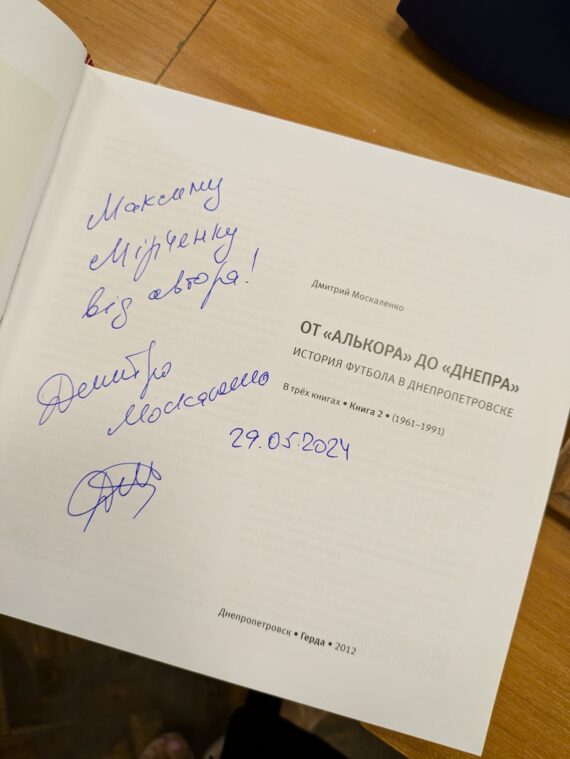 Максиму
Мірченку
від автора!
Дмитро
Москаленко
29.05.2024
Дмитрий Москаленко
ОТ «АЛЬКОРА» ДО «ДНЕПРА»
ИСТОРИЯ ФУТБОЛА В ДНЕПРОПЕТРОВСКЕ
В трёх книгах • Книга 2 • (1961–1991)
Днепропетровск • Герда • 2012